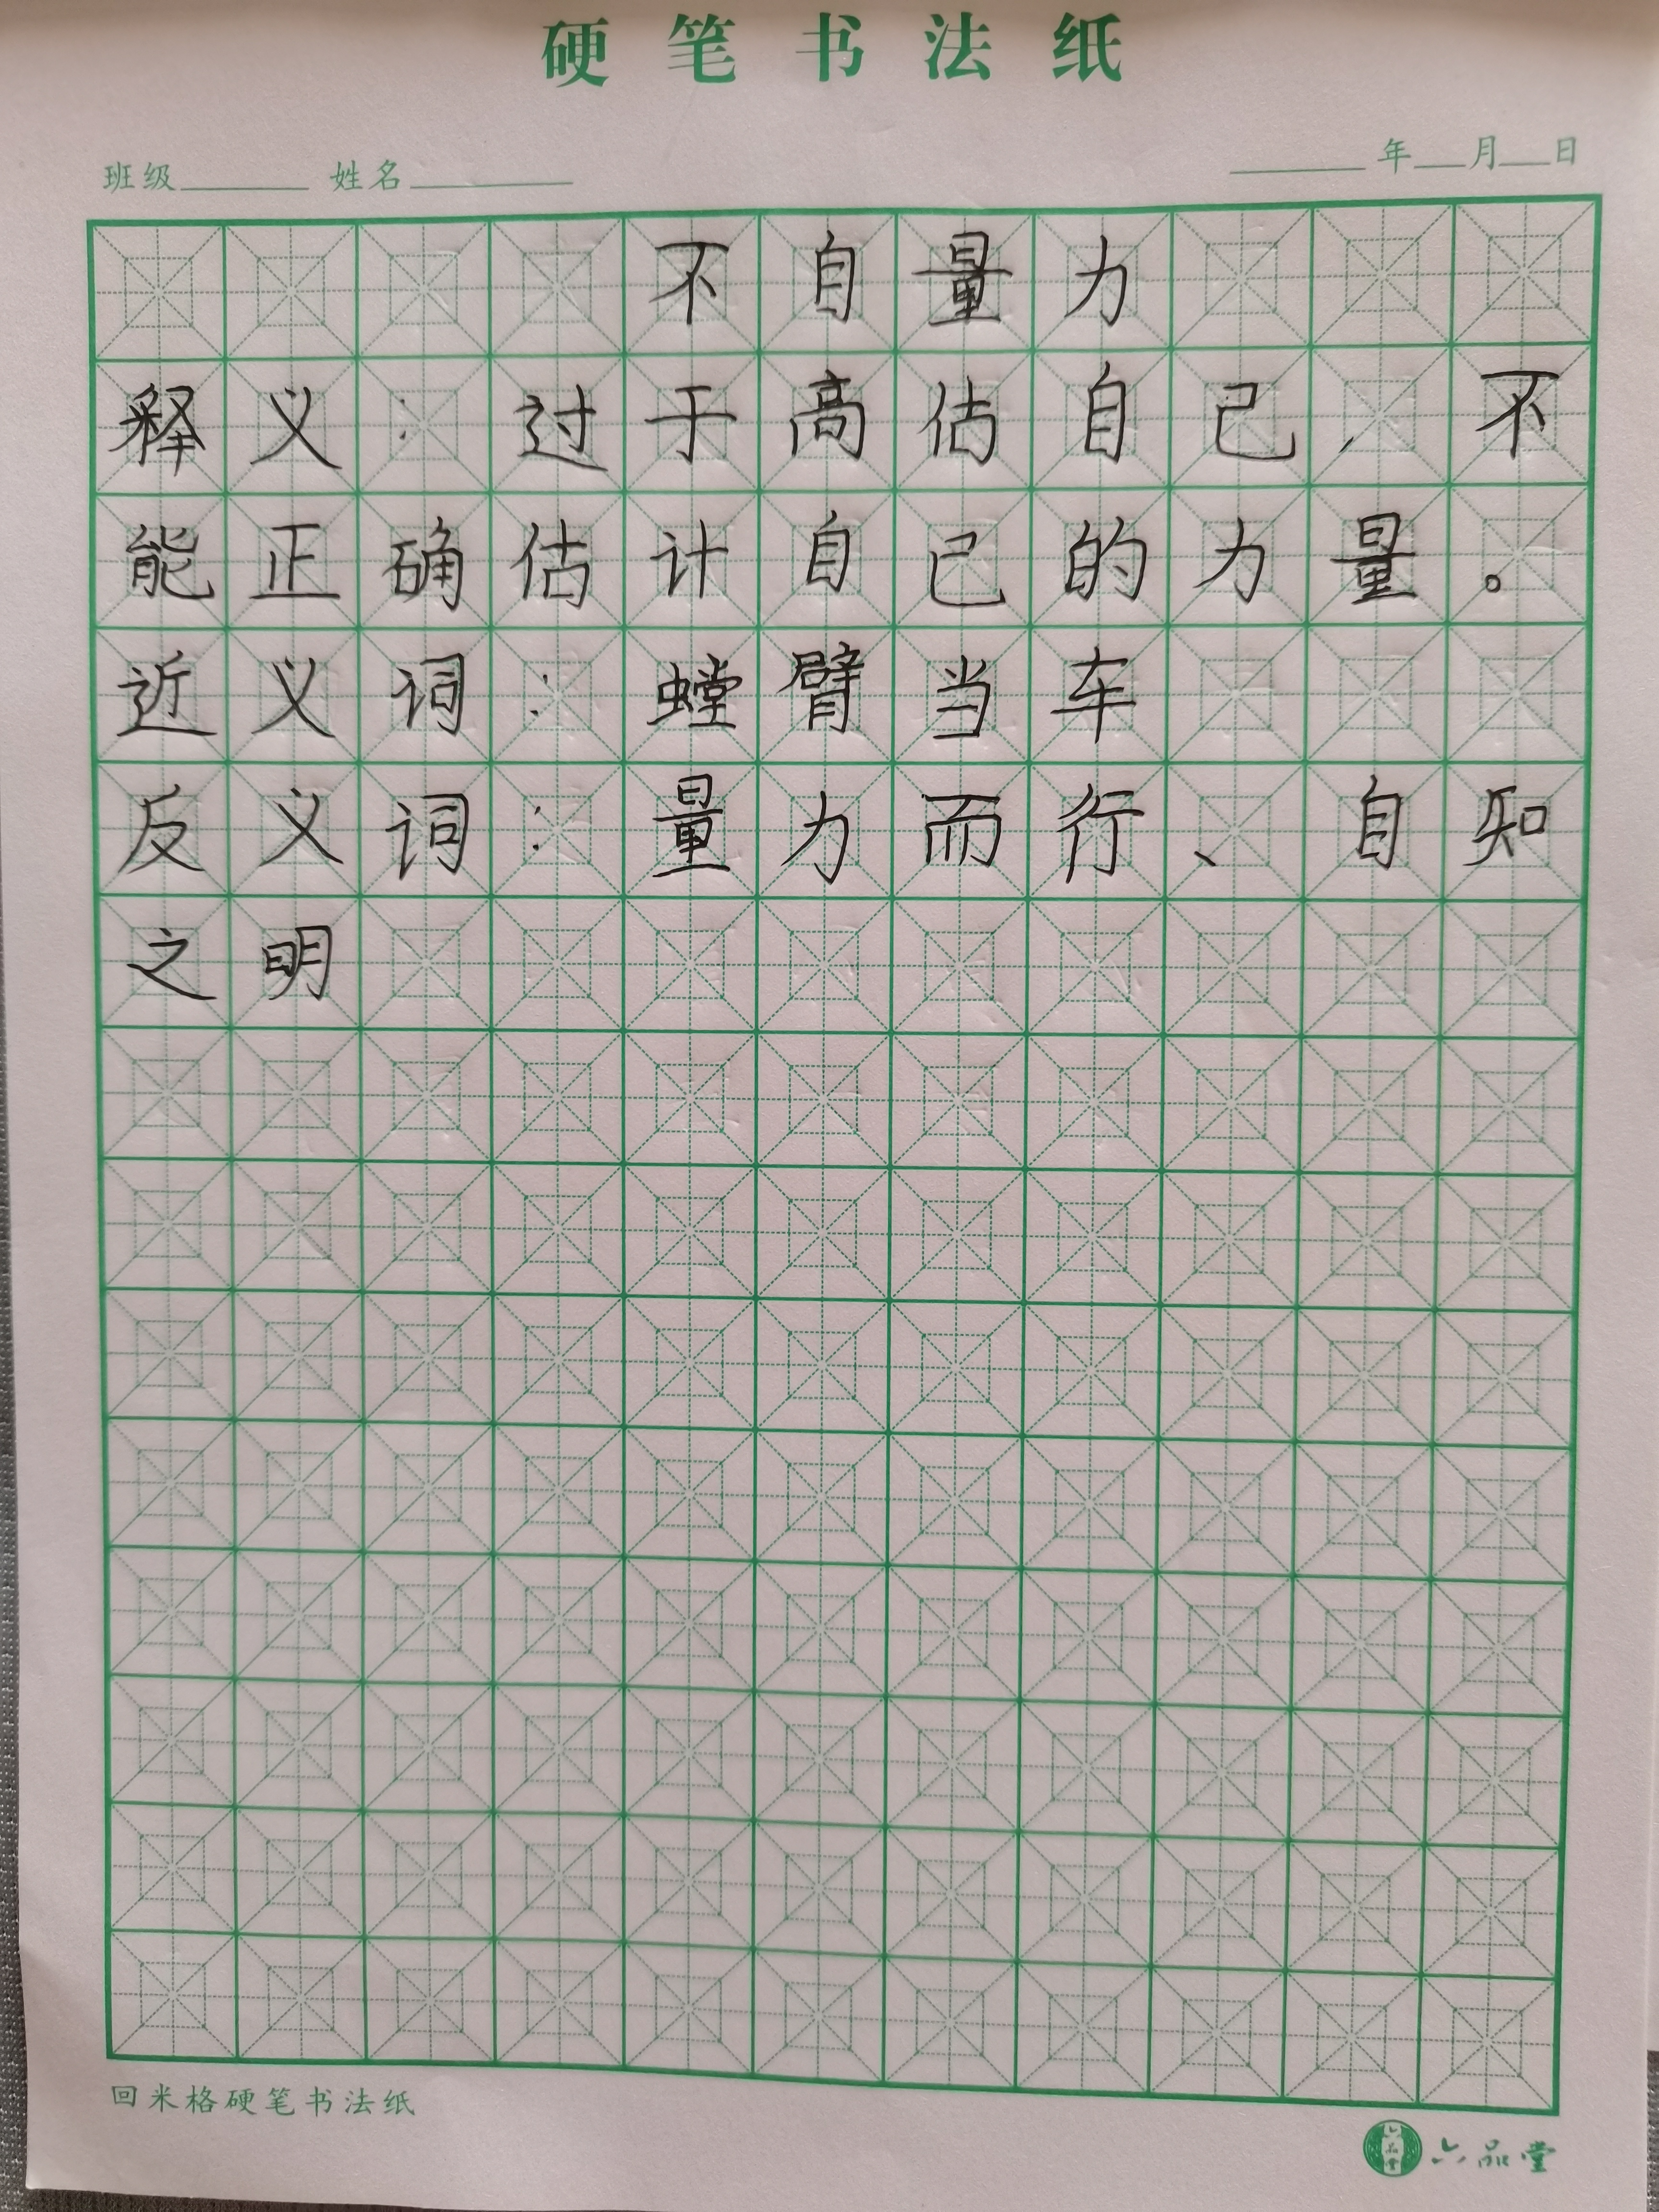 硬笔书法纸
班级 姓名 年 月 日
不自量力
释义：过于高估自己，不
能正确估计自己的力量。
近义词：螳臂当车
反义词：量力而行、自知
之明
回米格硬笔书法纸
六品堂 六品堂